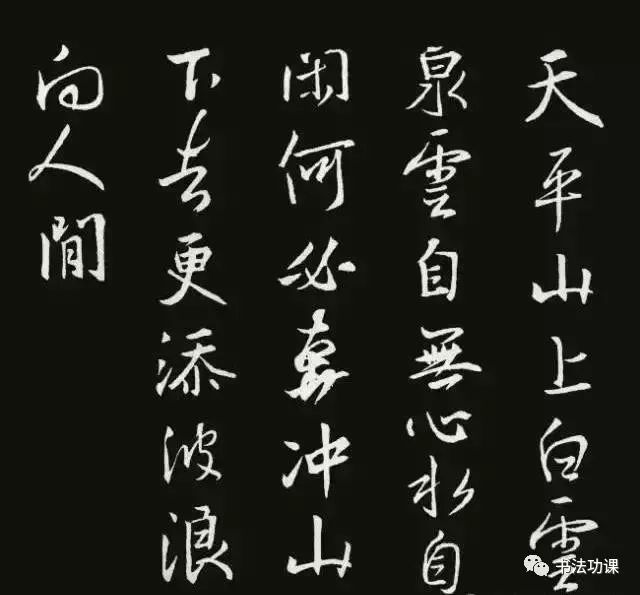 天平山上白雲
泉雲自無心水自
閑何必奔冲山
下去更添波浪
向人間
书法功课